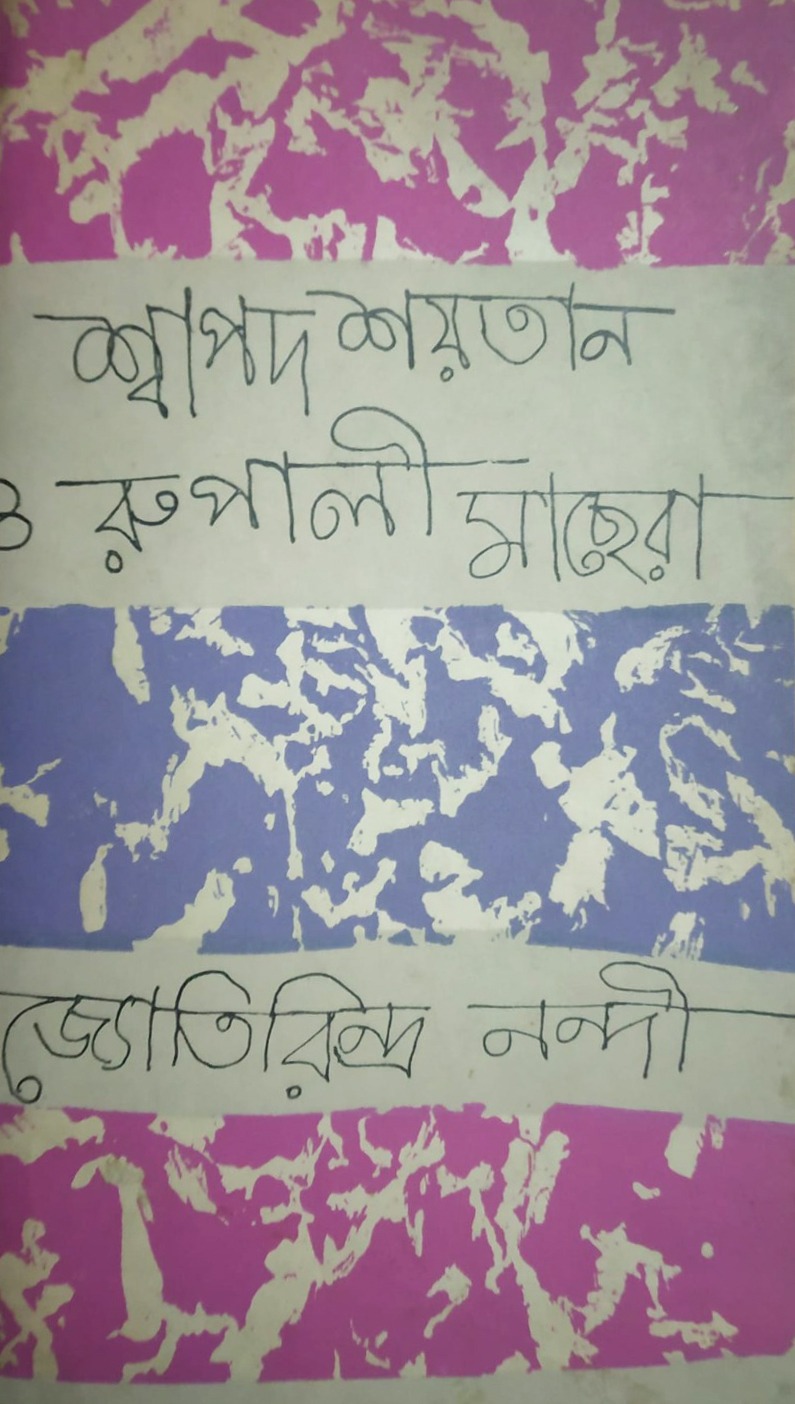 শ্বাপদ শয়তান
ও রুপালী মাছেরা
জ্যোতিরিন্দ্র নন্দী